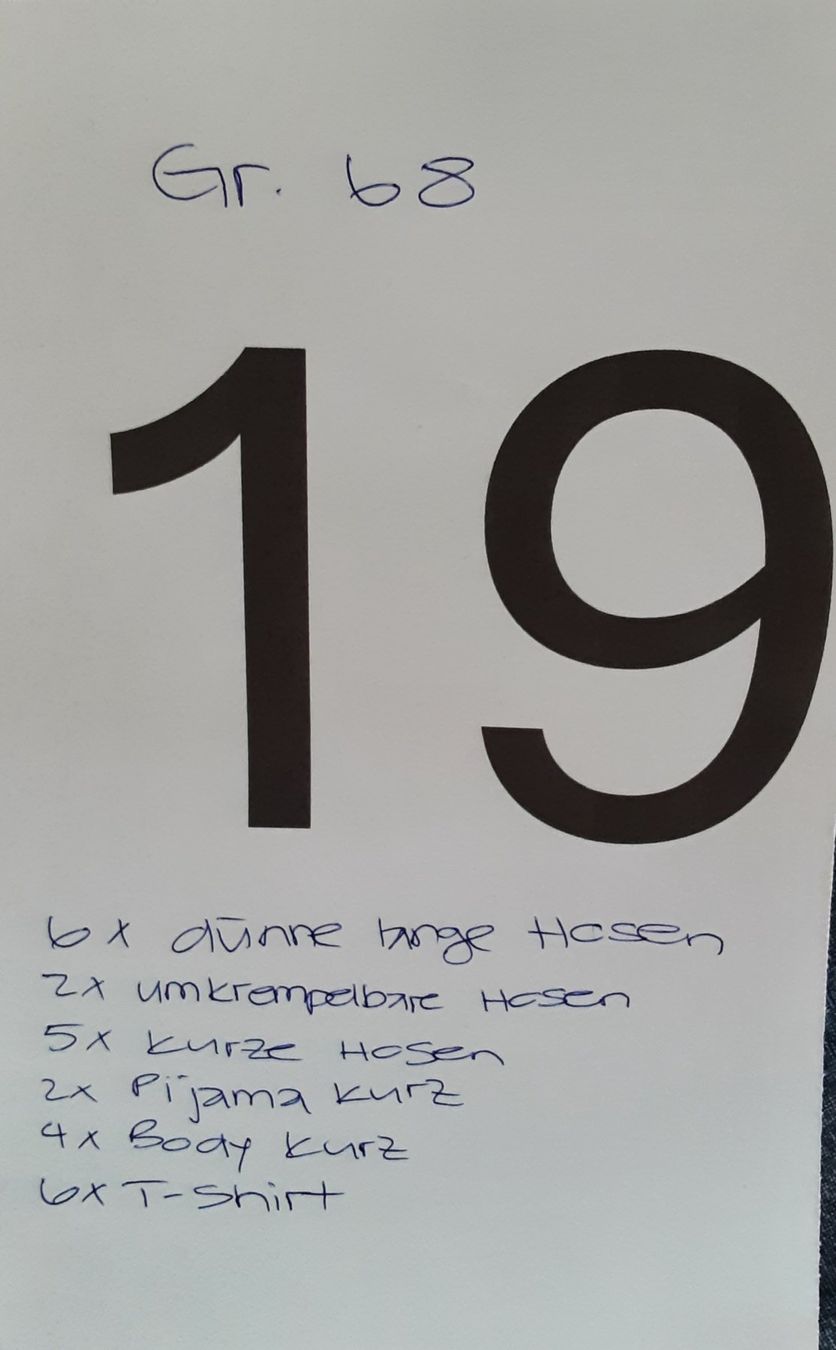 Gr. 68
19
6x dünne lange Hosen
2x umkrempelbare Hosen
5x kurze Hosen
2x Pijama kurz
4x Body kurz
6x T-Shirt